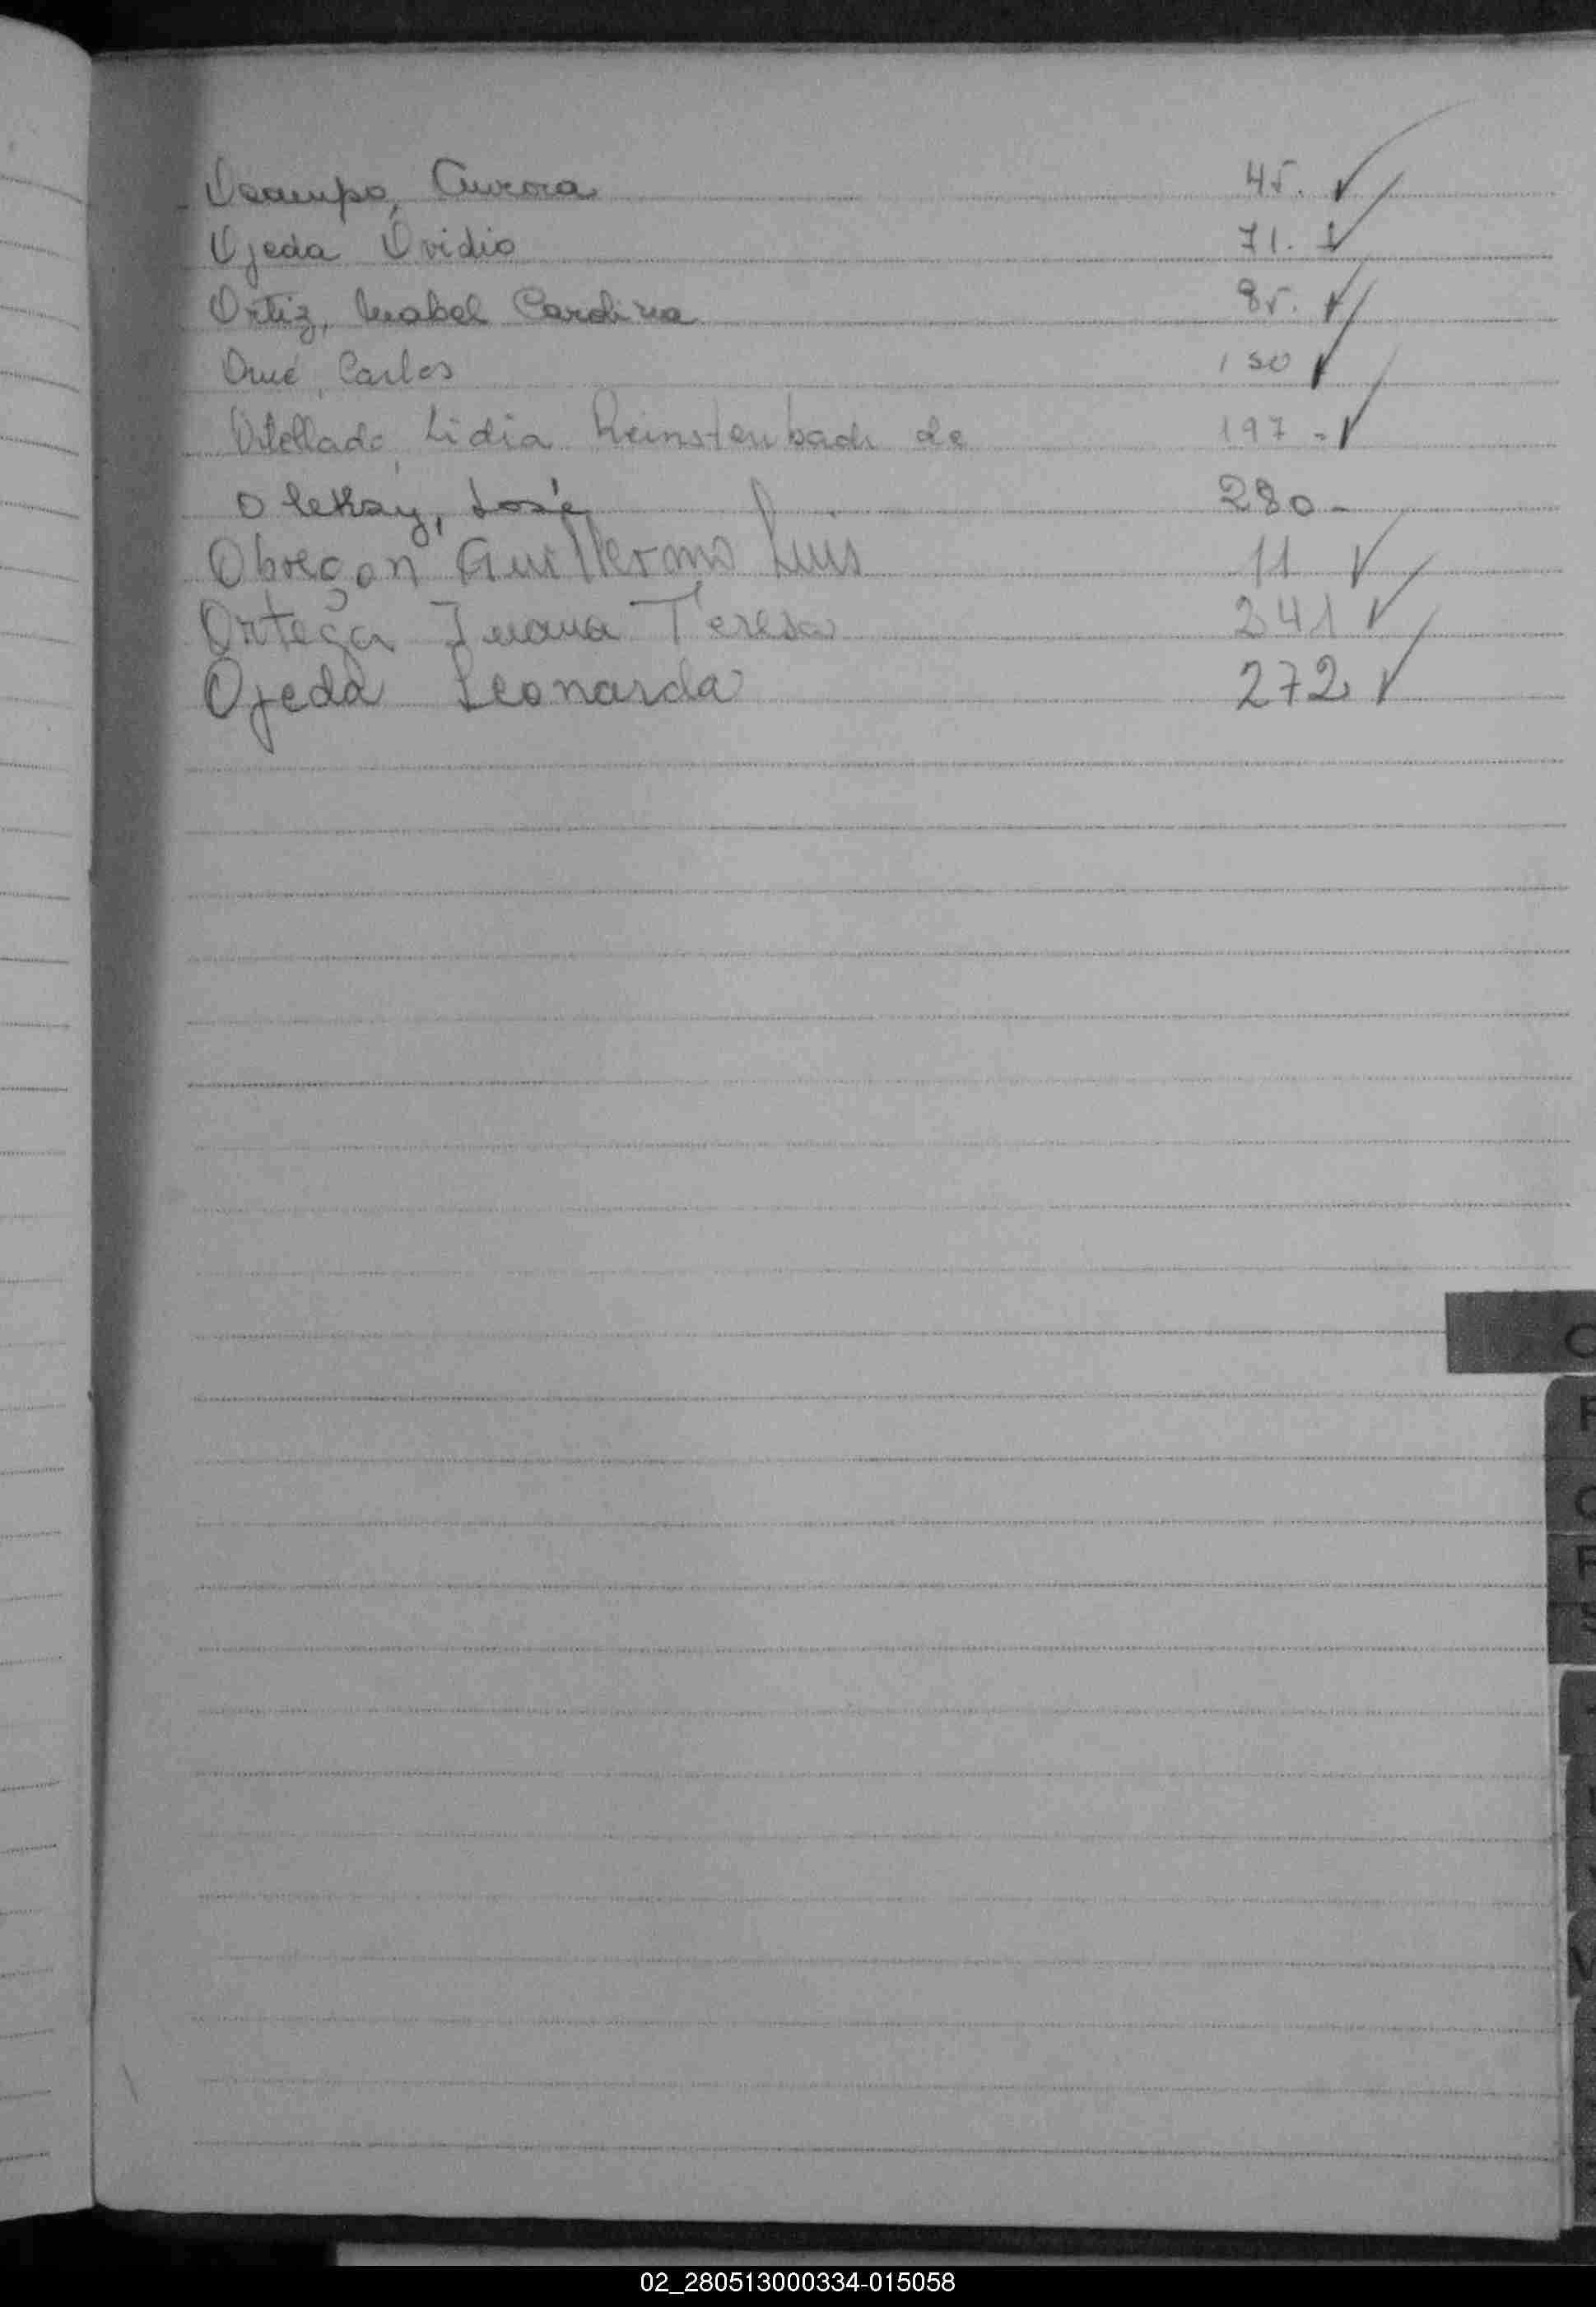 Ocampo, Aurora 45. ✓
Ojeda Ovidio 71. ✓
Ortiz, Mabel Carolina 85. ✓
Orué, Carlos 150 ✓
Lidia Reinstenbach de 197 - ✓
Olekszy, José 280 -
Obregon Guillermo Luis 11 ✓
Ortega Juana Teresa 241 ✓
Ojeda Leonarda 272 ✓
O
P
S
V
02_280513000334-015058